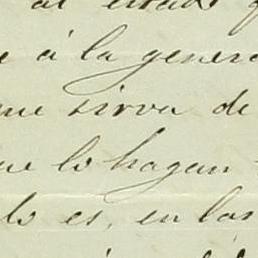 al estado
e á la genera
me sirva de
ue lo hagan
lo es, en las